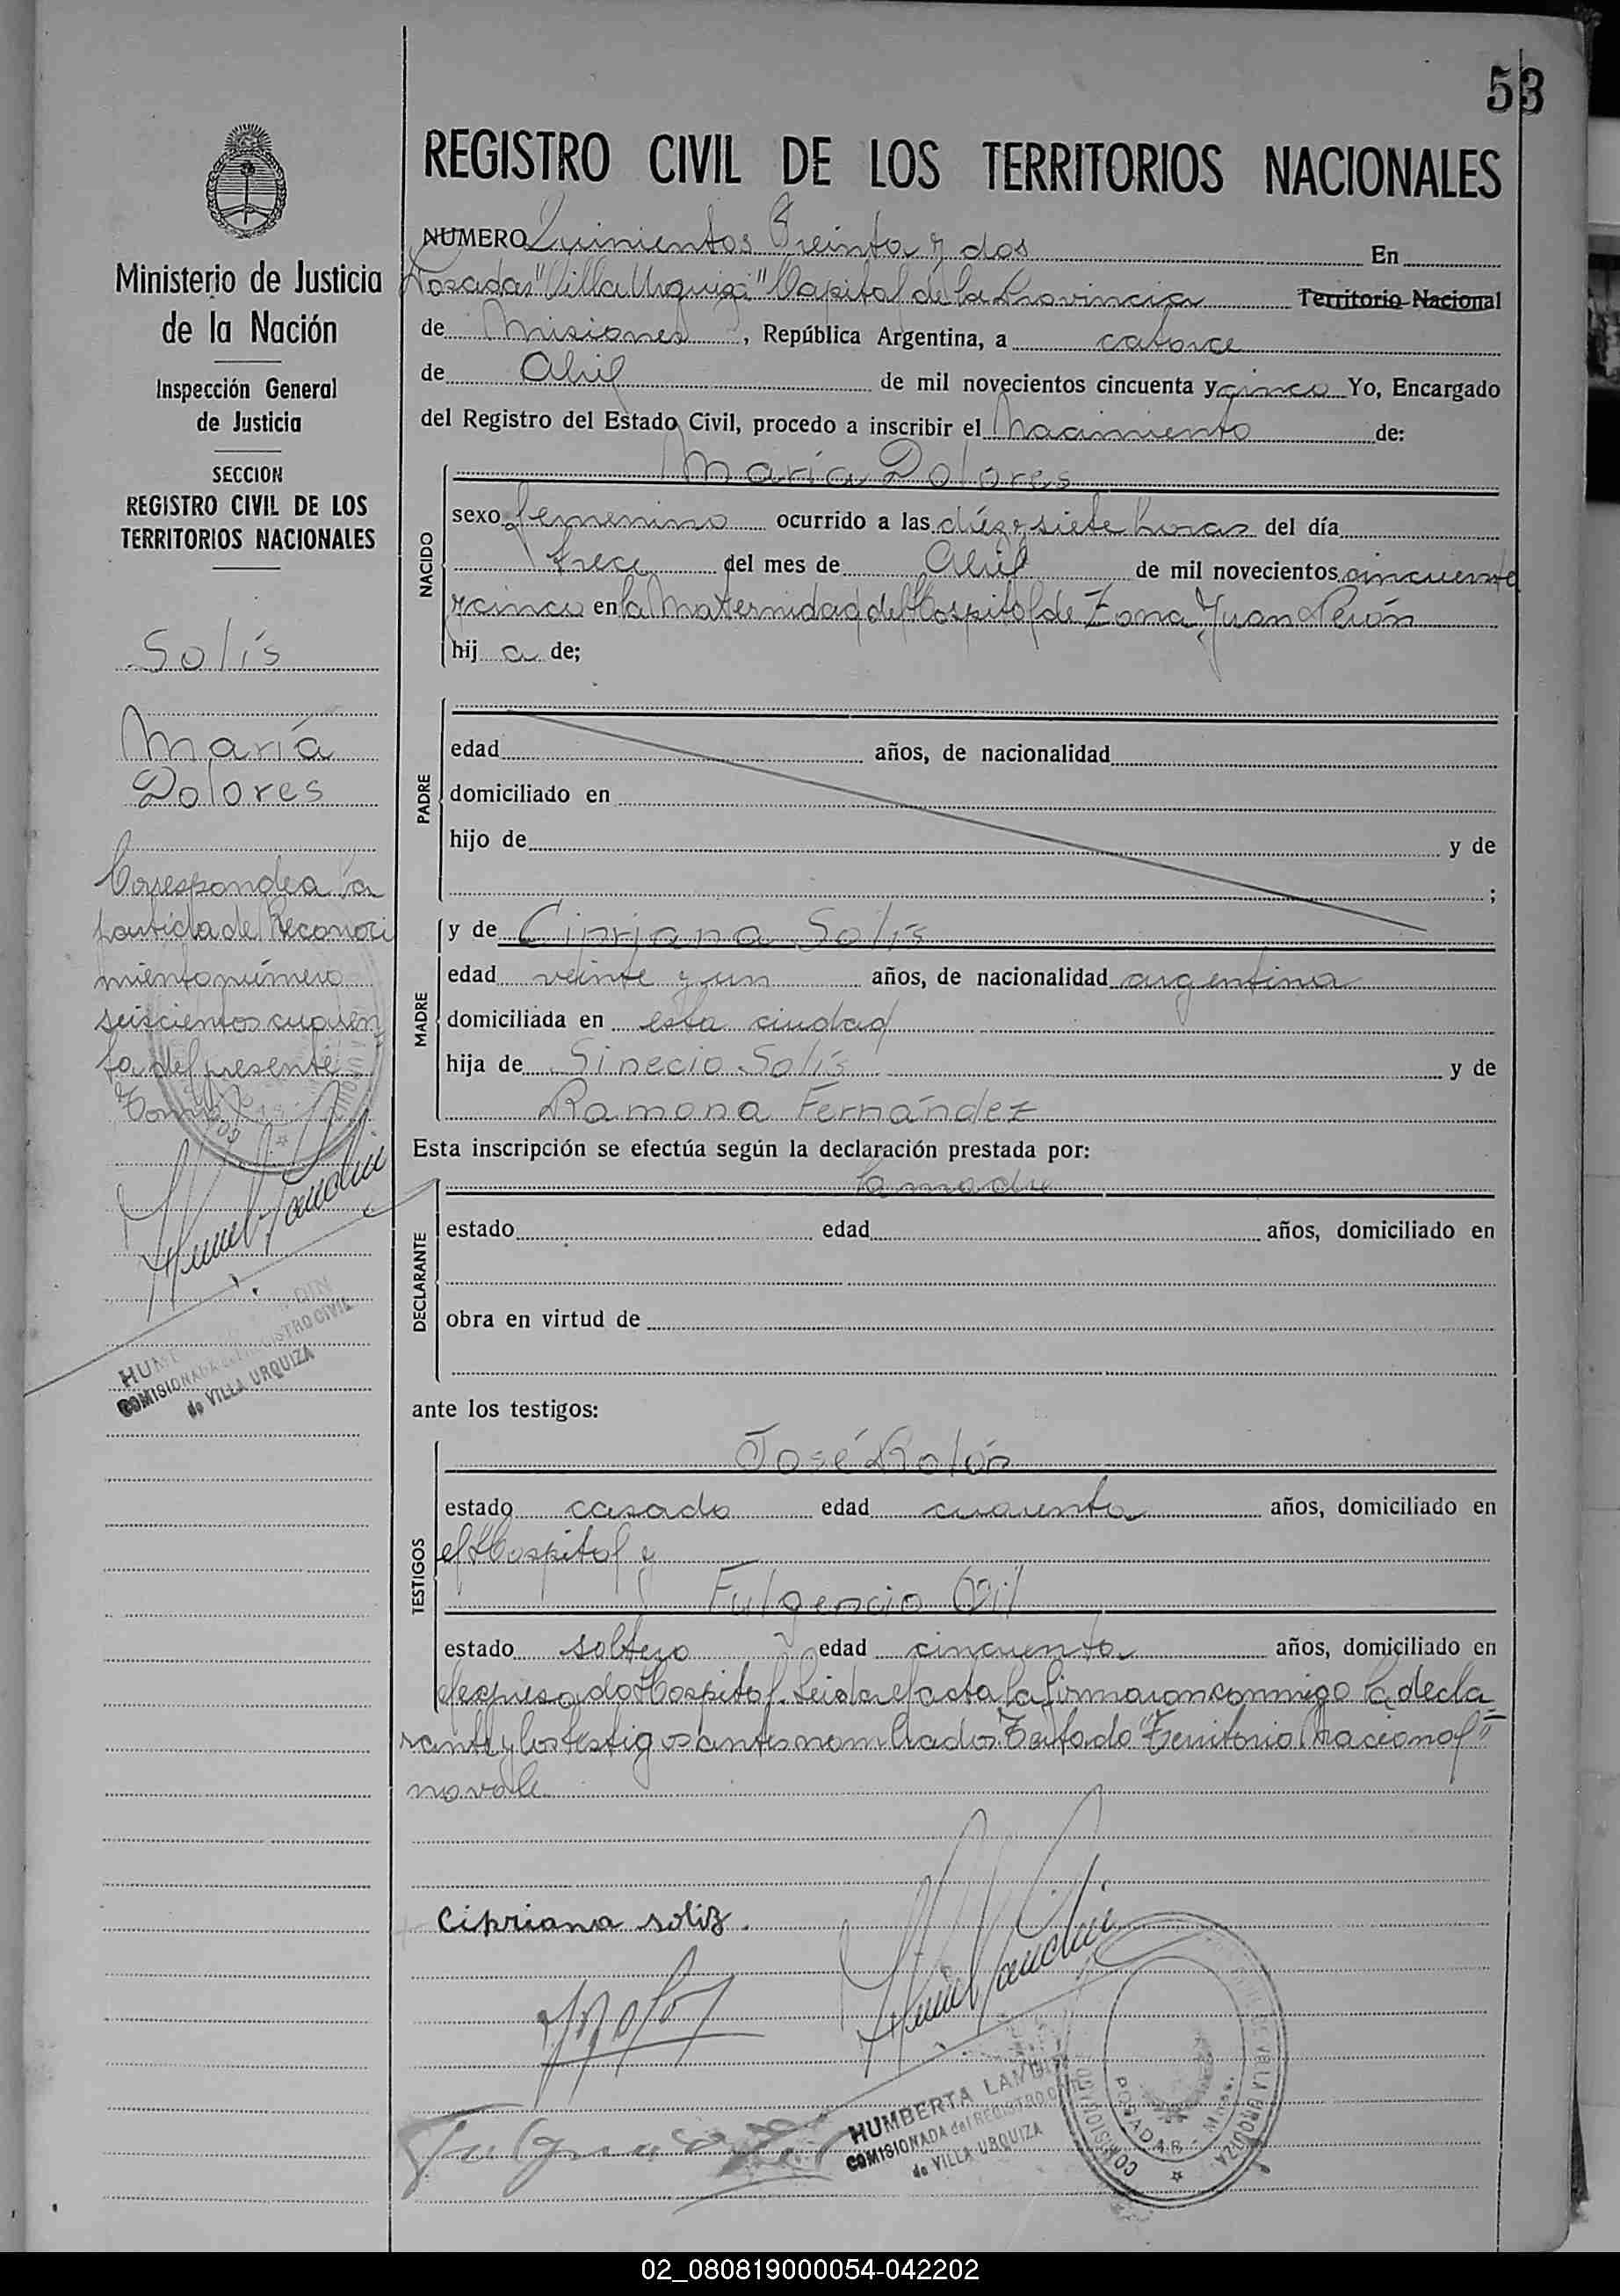 53
REGISTRO CIVIL DE LOS TERRITORIOS NACIONALES
NUMERO Quinientos Treinta y dos En
Posadas "Villa Urquiza" Capital de la Provincia Territorio Nacional
de Misiones, República Argentina, a catorce
de Abril de mil novecientos cincuenta y cinco Yo, Encargado
del Registro del Estado Civil, procedo a inscribir el Nacimiento de:
NACIDO
María Dolores
sexo femenino ocurrido a las diez y siete horas del día
trece del mes de Abril de mil novecientos cincuenta
y cinco en la Maternidad del Hospital de Zona Juan Perón
hij a de;
PADRE
edad años, de nacionalidad
domiciliado en
hijo de y de
;
MADRE
y de Cipriana Solís
edad veinte y un años, de nacionalidad argentina
domiciliada en esta ciudad
hija de Sinecio Solís y de
Ramona Fernández
Esta inscripción se efectúa según la declaración prestada por:
DECLARANTE
la madre
estado edad años, domiciliado en
obra en virtud de
ante los testigos:
TESTIGOS
José Rolón
estado casado edad cuarenta años, domiciliado en
el Hospital y
Fulgencio Gil
estado soltero edad cincuenta años, domiciliado en
el expresado Hospital. Leida el acta la firmaron conmigo la decla
rante y los testigos antes nombrados. Testado "Territorio Nacional"
no vale
Cipriana soliz.
HUMBERTA LANDINI
COMISIONADA del REGISTRO CIVIL
de VILLA URQUIZA
DE VILLA URQUIZA
POSADAS
Ministerio de Justicia
de la Nación
Inspección General
de Justicia
SECCION
REGISTRO CIVIL DE LOS
TERRITORIOS NACIONALES
Solís
María
Dolores
Corresponde a la
partida de Reconoci
miento número
seiscientos cuaren
ta del presente
Tomo
COMISIONADA del REGISTRO CIVIL
de VILLA URQUIZA
02_080819000054-042202